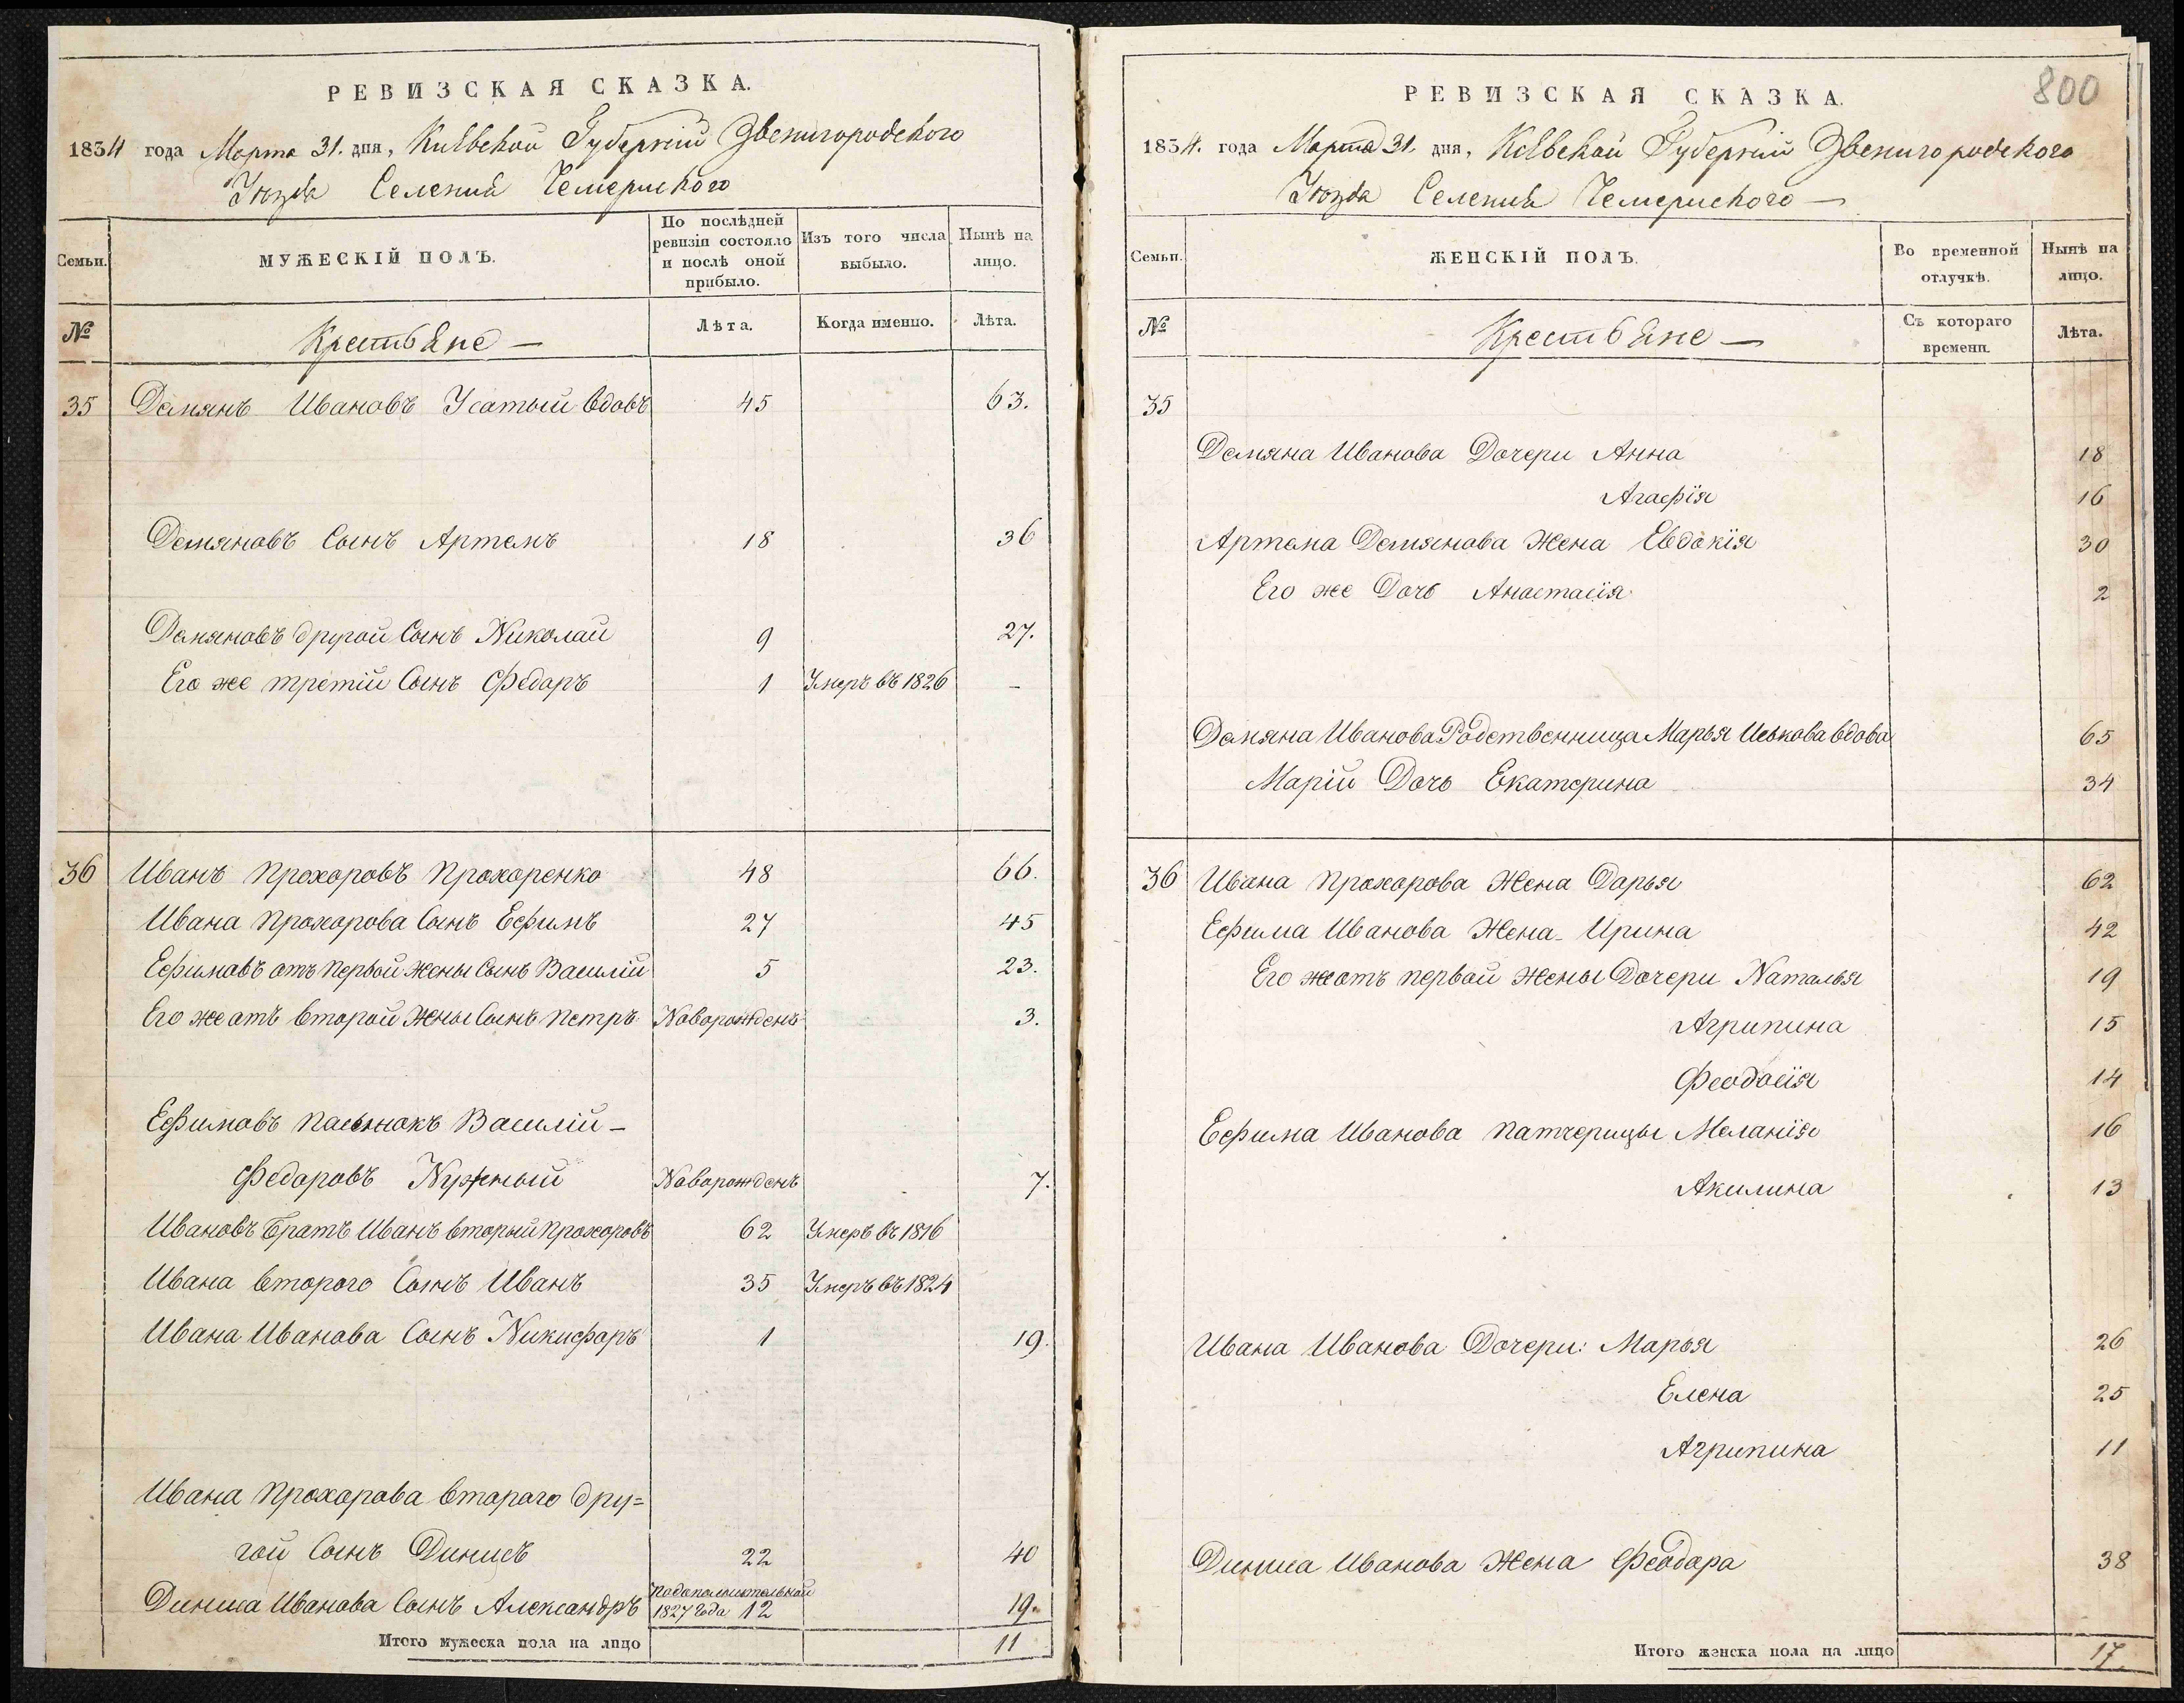 РЕВИЗСКАЯ СКАЗКА.
1834 года Марта 31. дня, Кіевской Губерніи Звенигородского
Уѣзда Селенія Чемериского
Семьи.
МУЖЕСКІЙ ПОЛЪ.
По послѣдней ревизіи состояло и послѣ оной прибыло.
Изъ того числа выбыло.
Нынѣ на лицо.
№
Крестьяне —
Лѣта.
Когда именно.
Лѣта.
35 Демянъ Ивановъ Усатый вдовъ 45 63.
Демяновъ Сынъ Артемъ 18 36
Демяновъ другой Сынъ Николай 9 27.
Его же третій Сынъ Федоръ 1 Умеръ въ 1826 –
36 Иванъ Прохоровъ Прохоренко 48 66.
Ивана Прохорова Сынъ Ефимъ 27 45
Ефимовъ отъ первой жены Сынъ Василій 5 23.
Его же отъ второй жены Сынъ Петръ Новорожденъ 3.
Ефимовъ пасынокъ Василій –
Федоровъ Нужный Новорожденъ 7.
Ивановъ Братъ Иванъ вторый Прохоровъ 62 Умеръ въ 1816
Ивана второго Сынъ Иванъ 35 Умеръ въ 1824
Ивана Иванова Сынъ Никифоръ 1 19.
Ивана Прохорова второго дру=
гой Сынъ Динисъ 22 40
Диниса Иванова Сынъ Александръ
1827 года 12 19.
Итого мужеска пола на лицо 11
800
РЕВИЗСКАЯ СКАЗКА.
1834. года Марта 31. дня, Кіевской Губерніи Звенигородского
Уѣзда Селенія Чемериского —
Семьи.
ЖЕНСКІЙ ПОЛЪ.
Во временной отлучкѣ.
Нынѣ на лицо.
№
Крестьяне —
Съ котораго времени.
Лѣта.
35
Демяна Иванова Дочери Анна 18
Агафія 16
Артема Демянова Жена Евдокія 30
Его же Дочь Анастасія 2
Демяна Иванова Родственница Марья Иськова вдова 65
Маріи Дочь Екатерина 34
36 Ивана Прохорова Жена Дарья 62
Ефима Иванова Жена Ирина 42
Его же отъ первой жены Дочери Наталья 19
Агрипина 15
Феодосія 14
Ефима Иванова патчерицы Меланія 16
Акилина 13
Ивана Иванова Дочери: Марья 26
Елена 25
Агрипина 11
Диниса Иванова Жена Феодора 38
Итого женска пола на лицо 17